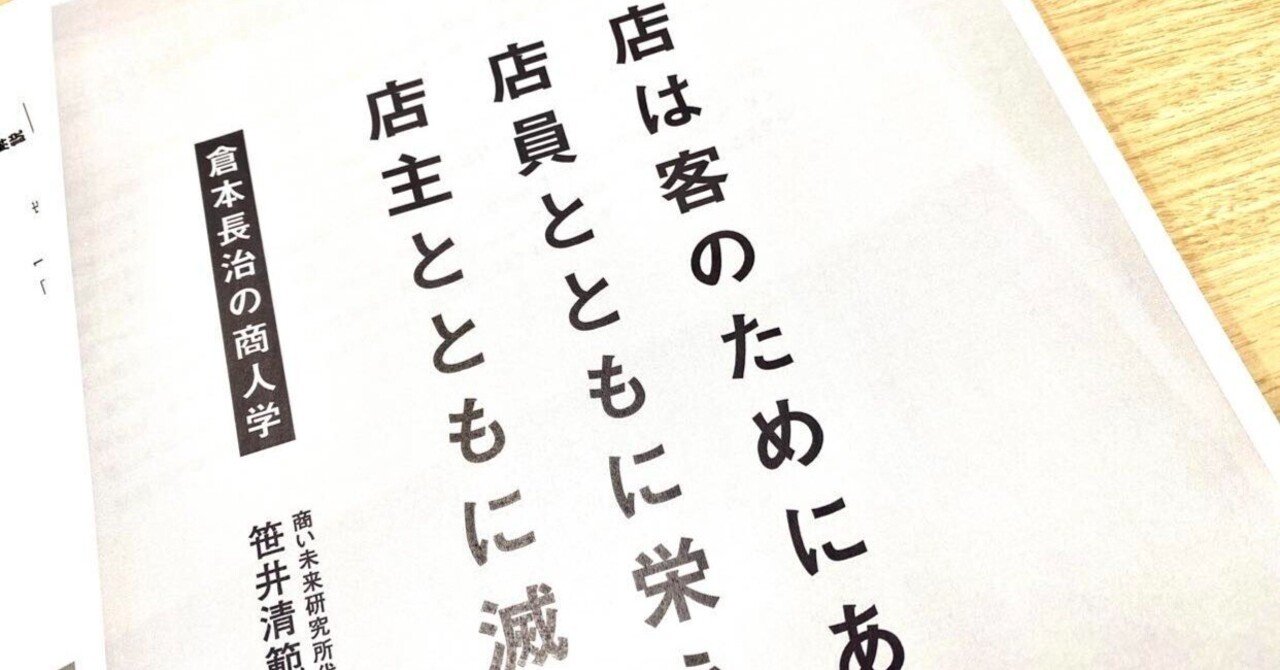 店は客のためにあ
店員とともに栄
店主とともに滅
倉本長治の商人学
商い未来研究所代
笹井清範